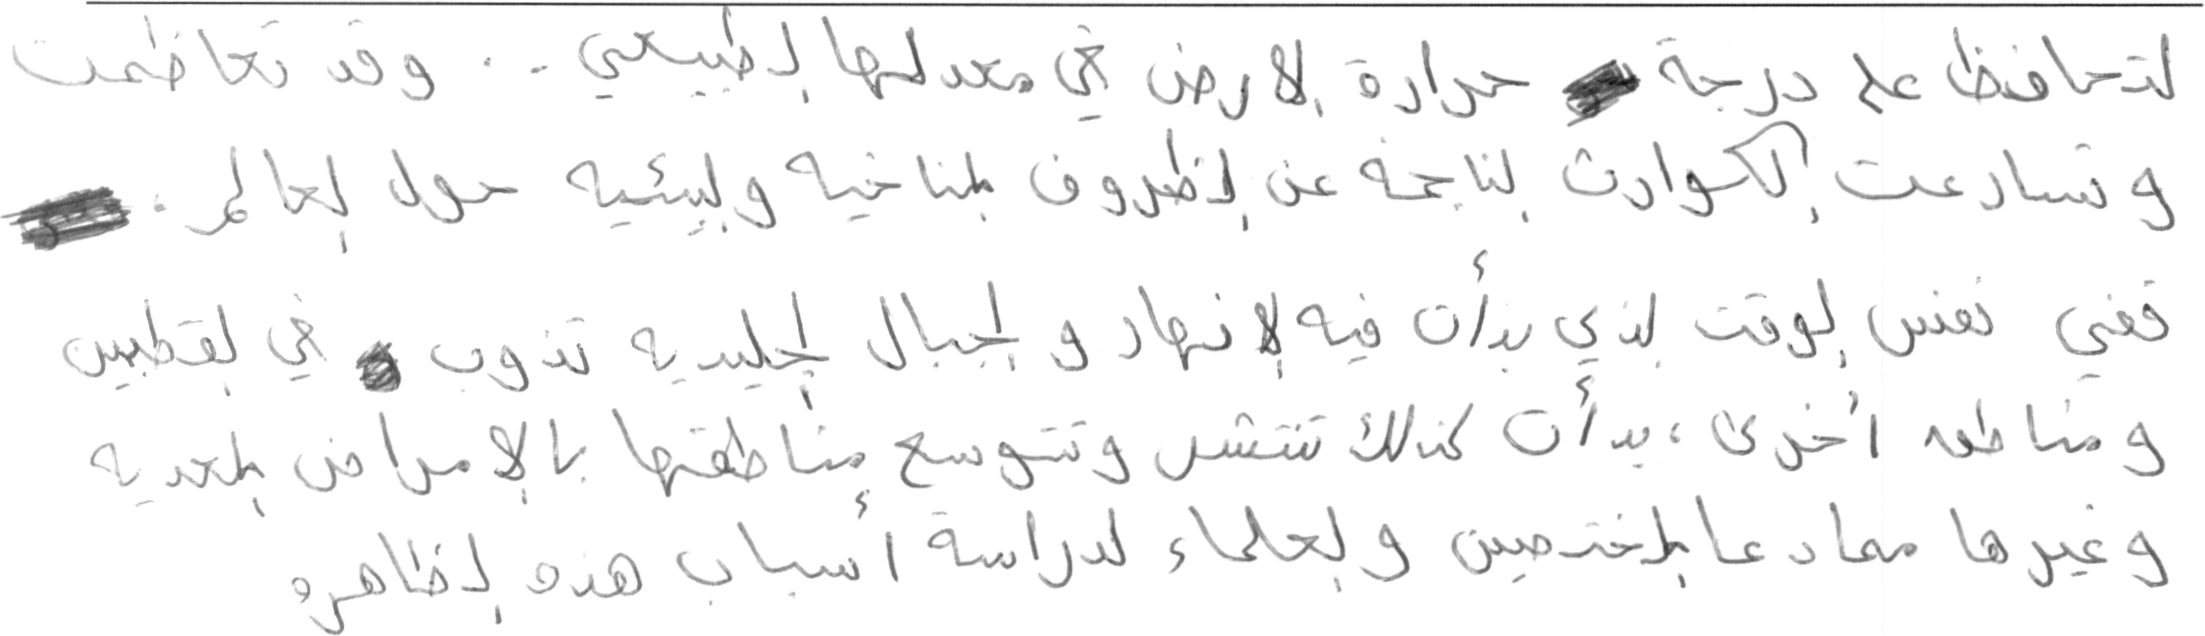 لتحافظ على درجة حرارة الارض في معدلها الطبيعي .. وقد تعاظمت
وتسارعت الكوارث الناجمة عن الظروف المناخيه والبيئيه حول العالم .
ففي نفس الوقت الذي بدأت فيه الانهار والجبال الجليديه تذوب في القطبين
ومناطق اخرى ، بدأت كذلك تنتشر وتتوسع مناطقها بالامراض المعديه
وغيرها مما دعا المختصين والعلماء لدراسة أسباب هذه الظاهره